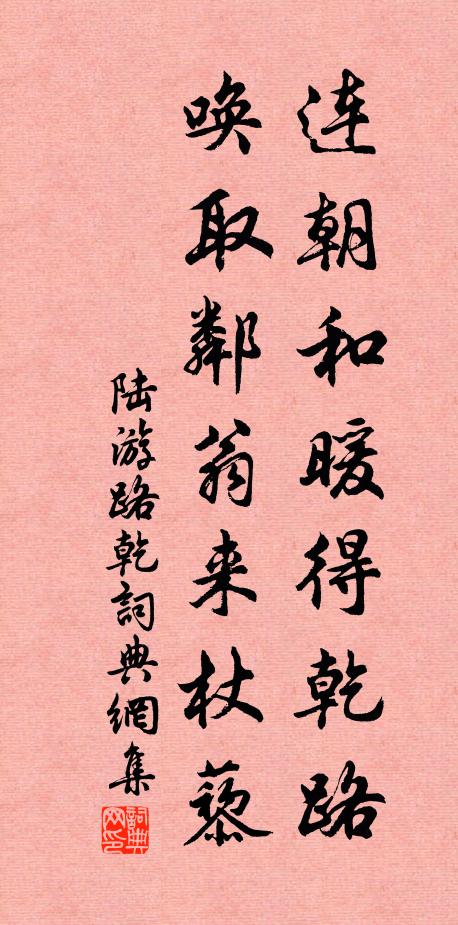 连朝和暖得乾路
唤取鄰翁来杖藜
陆游路乾詞典網集
詞典
网印